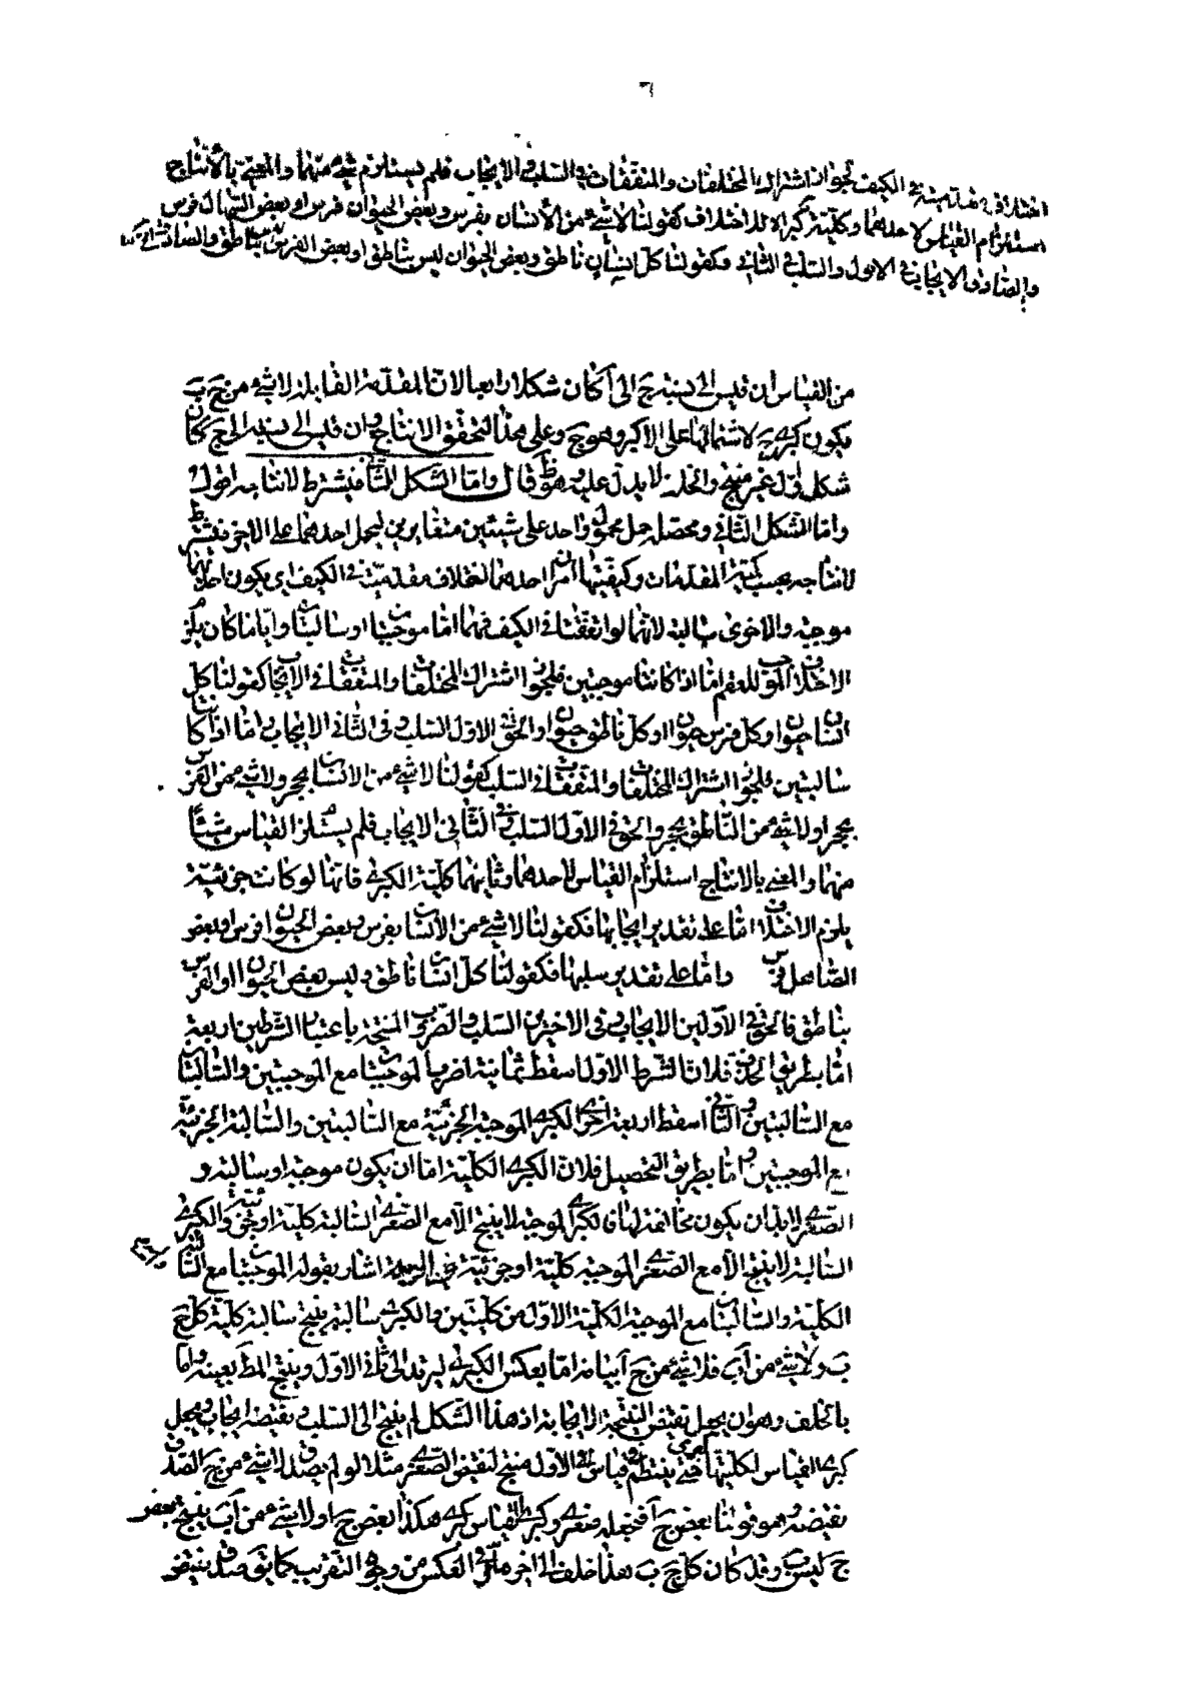 ٦
اختلاف مقدمتيه في الكيف لجواز اشتراك المختلفات والمتفقات في السلب والايجاب فلم يستلزم شيء منهما والمعنى بالانتاج
استلزام القياس لاحدهما وكلية كبراه للاختلاف كقولنا لا شيء من الانسان بفرس وبعض الحيوان فرس او بعض الصهال فرس
والصادق الايجاب في الاول والسلب في الثاني وكقولنا كل انسان ناطق وبعض الحيوان ليس بناطق او بعض الفرس ليس بناطق والصادق
من القياس ان قيس الى نسبة ج الى آ كان شكلا رابعا لان المقدمة القابلة لا شيء من ج ب
يكون كبرى لاشتمالها على الاكبر وهو ج وعلى هذا التحقق الانتاج وان قيس الى نسبة الى ج كان
شكل اول غير منتج والخلف لا يدل عليه هو ظ قال واما الشكل الثاني فيشترط لانتاجه اقول
واما الشكل الثاني ومحصله حمل محمول واحد على شيئين متغايرين ليحمل احدهما على الاخر فيشترط
لانتاجه بحسب كمية المقدمات وكيفيتها امران احدهما اختلاف مقدمتيه في الكيف اي يكون احدهما
موجبة والاخرى سالبة لانهما لو اتفقتا في الكيف فهما اما موجبتان او سالبتان واياما كان يلزم
الاختلاف الموجب للعقم اما اذا كانتا موجبتين فلجواز اشتراك المختلفات والمتفقات في الايجاب كقولنا كل
انسان حيوان وكل فرس حيوان او كل ناطق حيوان والحق في الاول السلب وفي الثاني الايجاب واما اذا كانتا
سالبتين فلجواز اشتراك المختلفات والمتفقات في السلب كقولنا لا شيء من الانسان بحجر ولا شيء من الفرس
بحجر او لا شيء من الناطق بحجر والحق في الاول السلب وفي الثاني الايجاب فلم يستلزم القياس شيئا
منهما والمعنى بالانتاج استلزام القياس لاحدهما وثانيهما كلية الكبرى فانها لو كانت جزئية
يلزم الاختلاف اما على تقدير ايجابها فكقولنا لا شيء من الانسان بفرس وبعض الحيوان فرس او بعض
الصاهل فرس واما على تقدير سلبها فكقولنا كل انسان ناطق وليس بعض الحيوان او الفرس
بناطق فالحق في الاولين الايجاب وفي الاخيرين السلب والضروب المنتجة باعتبار الشرطين اربعة
اما بطريق الحذف فلان الشرط الاول اسقط ثمانية اضرب الموجبتان مع الموجبتين والسالبتان
مع السالبتين والثاني اسقط اربعة اخرى الكبرى الموجبة الجزئية مع السالبتين والسالبة الجزئية
مع الموجبتين واما بطريق التحصيل فلان الكبرى الكلية اما ان يكون موجبة او سالبة و
الصغرى لابد ان يكون مخالفة لها فالكبرى الموجبة لا ينتج الا مع الصغرى السالبة كلية او جزئية والكبرى
السالبة لا ينتج الا مع الصغرى الموجبة كلية او جزئية اشار بقوله الموجبتان مع السالبة
الكلية والسالبتان مع الموجبة الكلية الاول من كليتين والكبرى سالبة ينتج سالبة كلية كل ج
ب ولا شيء من آ ب فلا شيء من ج آ بيانه اما بعكس الكبرى ليرتد الى ثاني الاول وينتج المط بعينه واما
بالخلف وهو ان يجعل نقيض النتيجة لايجابه اذ هذا الشكل لم ينتج الى السلب ونقيضه ايجاب ويجعل
كبرى القياس لكليتها كبرى حتى ينتظم قياس في الاول منتج لنقيض الصغرى مثلا لو لم يصدق لا شيء من ج آ لصدق
نقيضه وهو قولنا بعض ج آ فنجعله صغرى وكبرى القياس كبرى هكذا بعض ج آ ولا شيء من آ ب ينتج بعض
ج ليس ب وقد كان كل ج ب هذا خلف الى اخر ما في العكس من وجوه التقريب كما يتق صدق نقيض